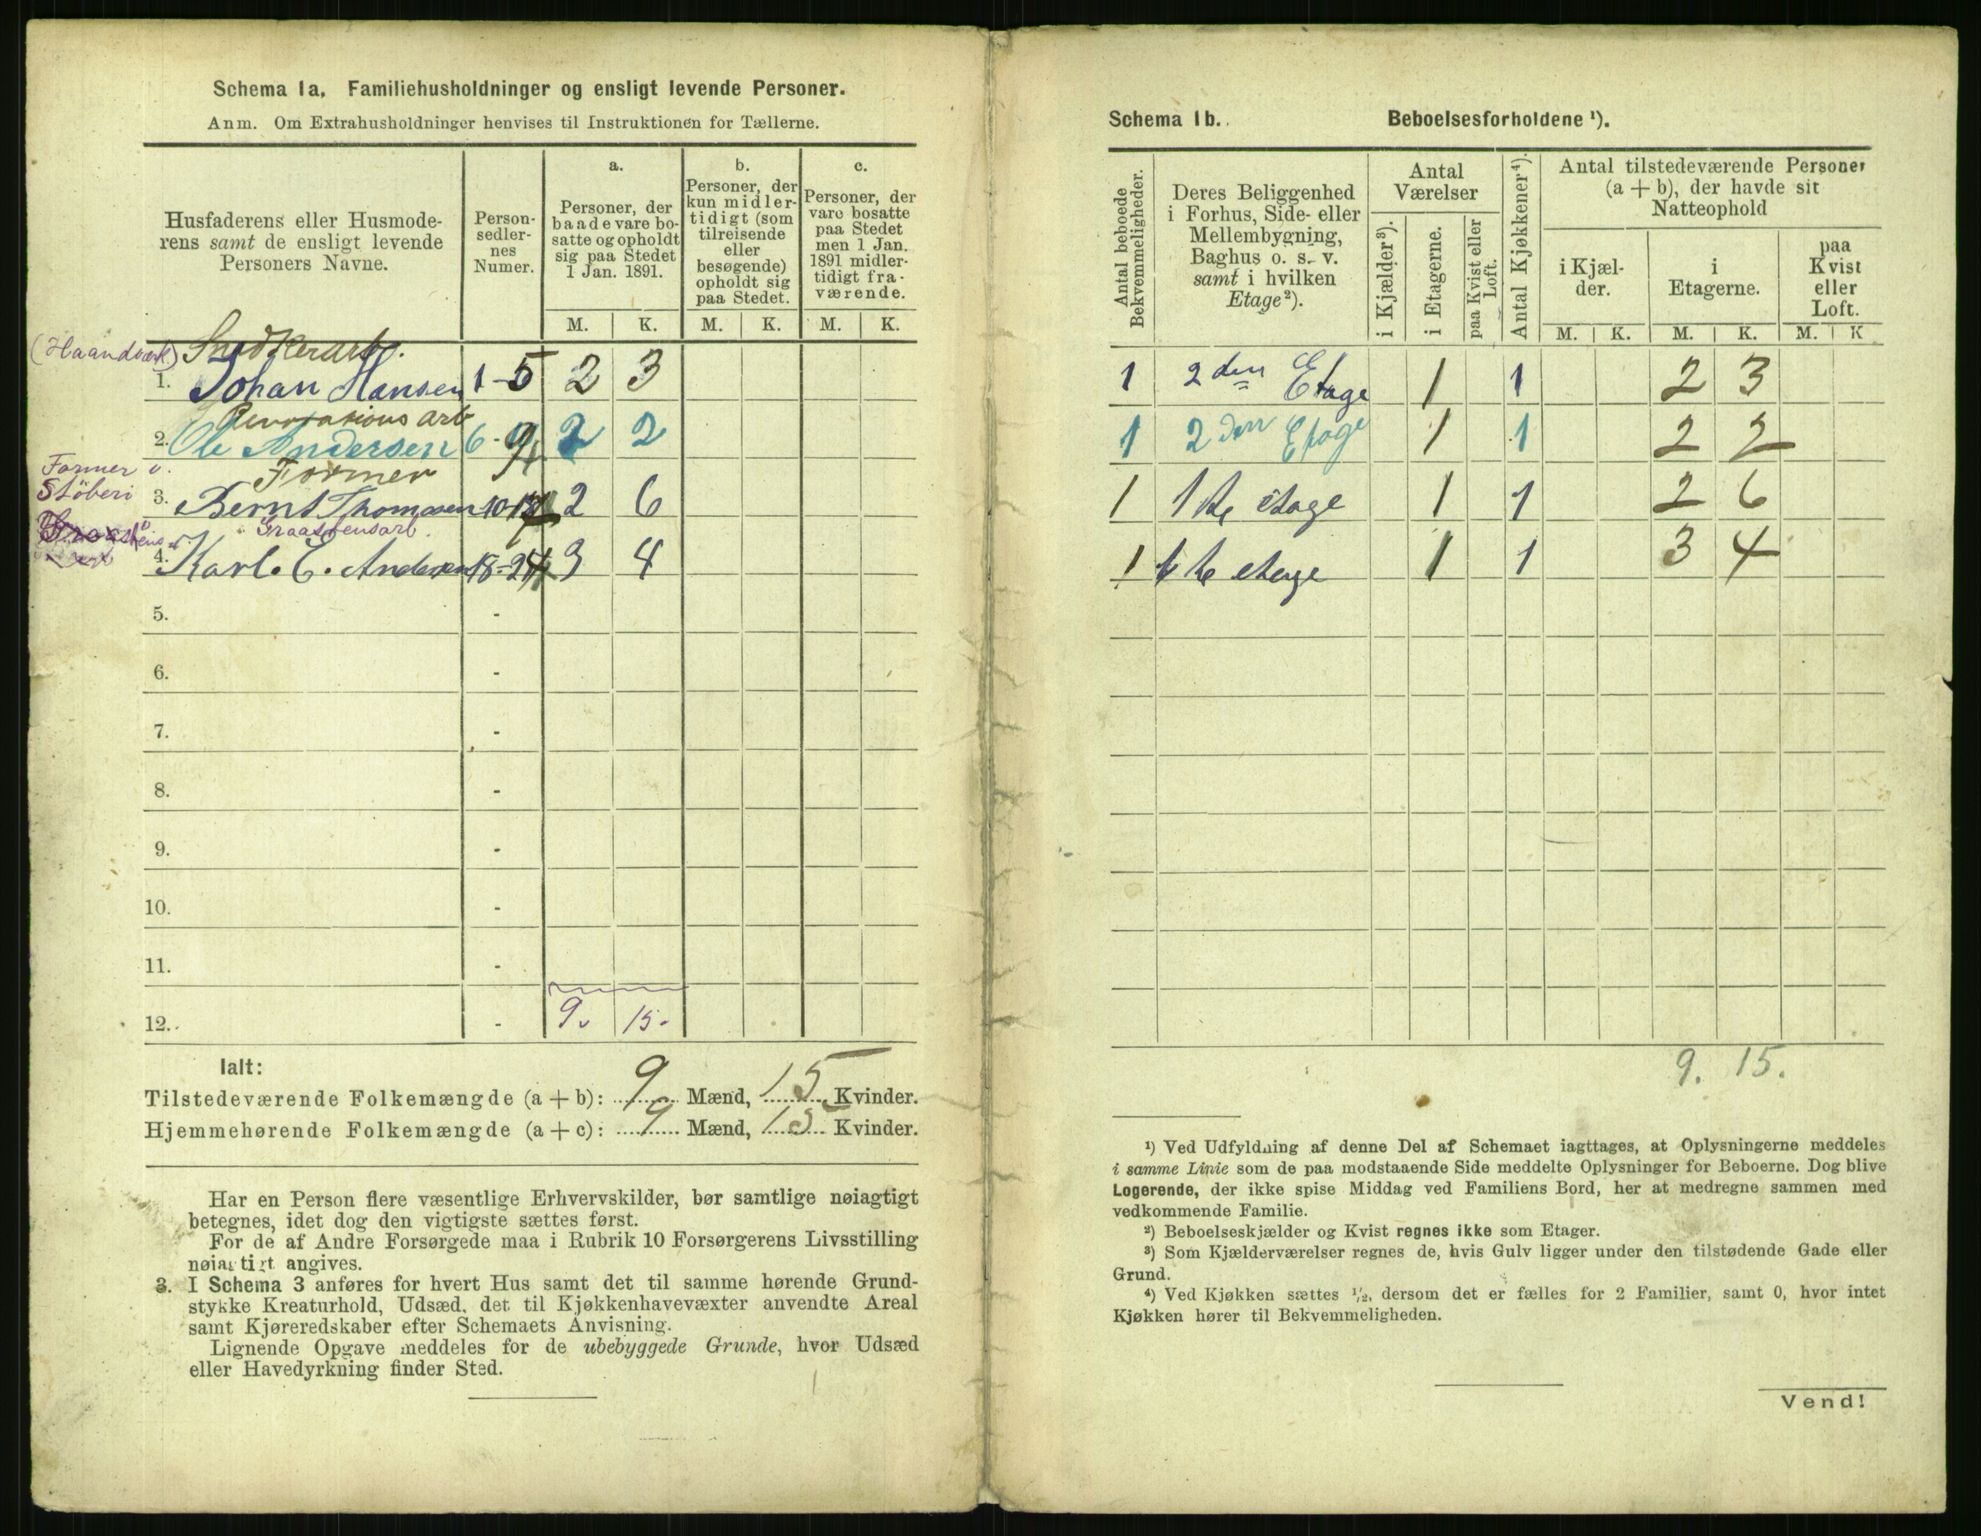 Schema 1a. Familiehusholdninger og ensligt levende Personer.
Anm. Om Extrahusholdninger henvises til Instruktionen for Tællerne.
Husfaderens eller Husmoderens samt de ensligt levende Personers Navne.
Personsedlernes Numer.
a.
Personer, der baade vare bosatte og opholdt sig paa Stedet 1 Jan. 1891.
b.
Personer, der kun midlertidigt (som tilreisende eller besøgende) opholdt sig paa Stedet.
c.
Personer, der vare bosatte paa Stedet men 1 Jan. 1891 midlertidigt fraværende.
M. K. M. K. M. K.
(Haandværk) Snedkerarb.
1. Johan Hansen 1-5 2 3
Dekorationsarb
2. Ole Andersen 6-9 2 2
Former o.
Støberi
Former
3. Bernt Thomsen 10-17 2 6
Graastensarb.
4. Karl. E. Andersen 18-24 3 4
5. -
6. -
7. -
8. -
9. -
10. -
11. -
12. - 9. 15.
Ialt:
Tilstedeværende Folkemængde (a + b): 9 Mænd, 15 Kvinder.
Hjemmehørende Folkemængde (a + c): 9 Mænd, 15 Kvinder.
Har en Person flere væsentlige Erhvervskilder, bør samtlige nøiagtigt
betegnes, idet dog den vigtigste sættes først.
For de af Andre Forsørgede maa i Rubrik 10 Forsørgerens Livsstilling
nøiagtigt angives.
3. I Schema 3 anføres for hvert Hus samt det til samme hørende Grund-
stykke Kreaturhold, Udsæd, det til Kjøkkenhavevæxter anvendte Areal
samt Kjøreredskaber efter Schemaets Anvisning.
Lignende Opgave meddeles for de ubebyggede Grunde, hvor Udsæd
eller Havedyrkning finder Sted.
Schema 1b. Beboelsesforholdene ¹).
Antal beboede Bekvemmeligheder.
Deres Beliggenhed i Forhus, Side- eller Mellembygning, Baghus o. s. v. samt i hvilken Etage²).
Antal Værelser
i Kjælder³).
i Etagerne.
paa Kvist eller Loft.
Antal Kjøkkener⁴).
Antal tilstedeværende Personer (a + b), der havde sit Natteophold
i Kjælder.
i Etagerne.
paa Kvist eller Loft.
M. K. M. K. M. K
1 2 den Etage 1 1 2 3
1 2 den Etage 1 1 2 2
1 1 ste etage 1 1 2 6
1 1 ste etage 1 1 3 4
9. 15.
¹) Ved Udfyldning af denne Del af Schemaet iagttages, at Oplysningerne meddeles
i samme Linie som de paa modstaaende Side meddelte Oplysninger for Beboerne. Dog blive
Logerende, der ikke spise Middag ved Familiens Bord, her at medregne sammen med
vedkommende Familie.
²) Beboelseskjælder og Kvist regnes ikke som Etager.
³) Som Kjælderværelser regnes de, hvis Gulv ligger under den tilstødende Gade eller
Grund.
⁴) Ved Kjøkken sættes ½, dersom det er fælles for 2 Familier, samt 0, hvor intet
Kjøkken hører til Bekvemmeligheden.
Vend!